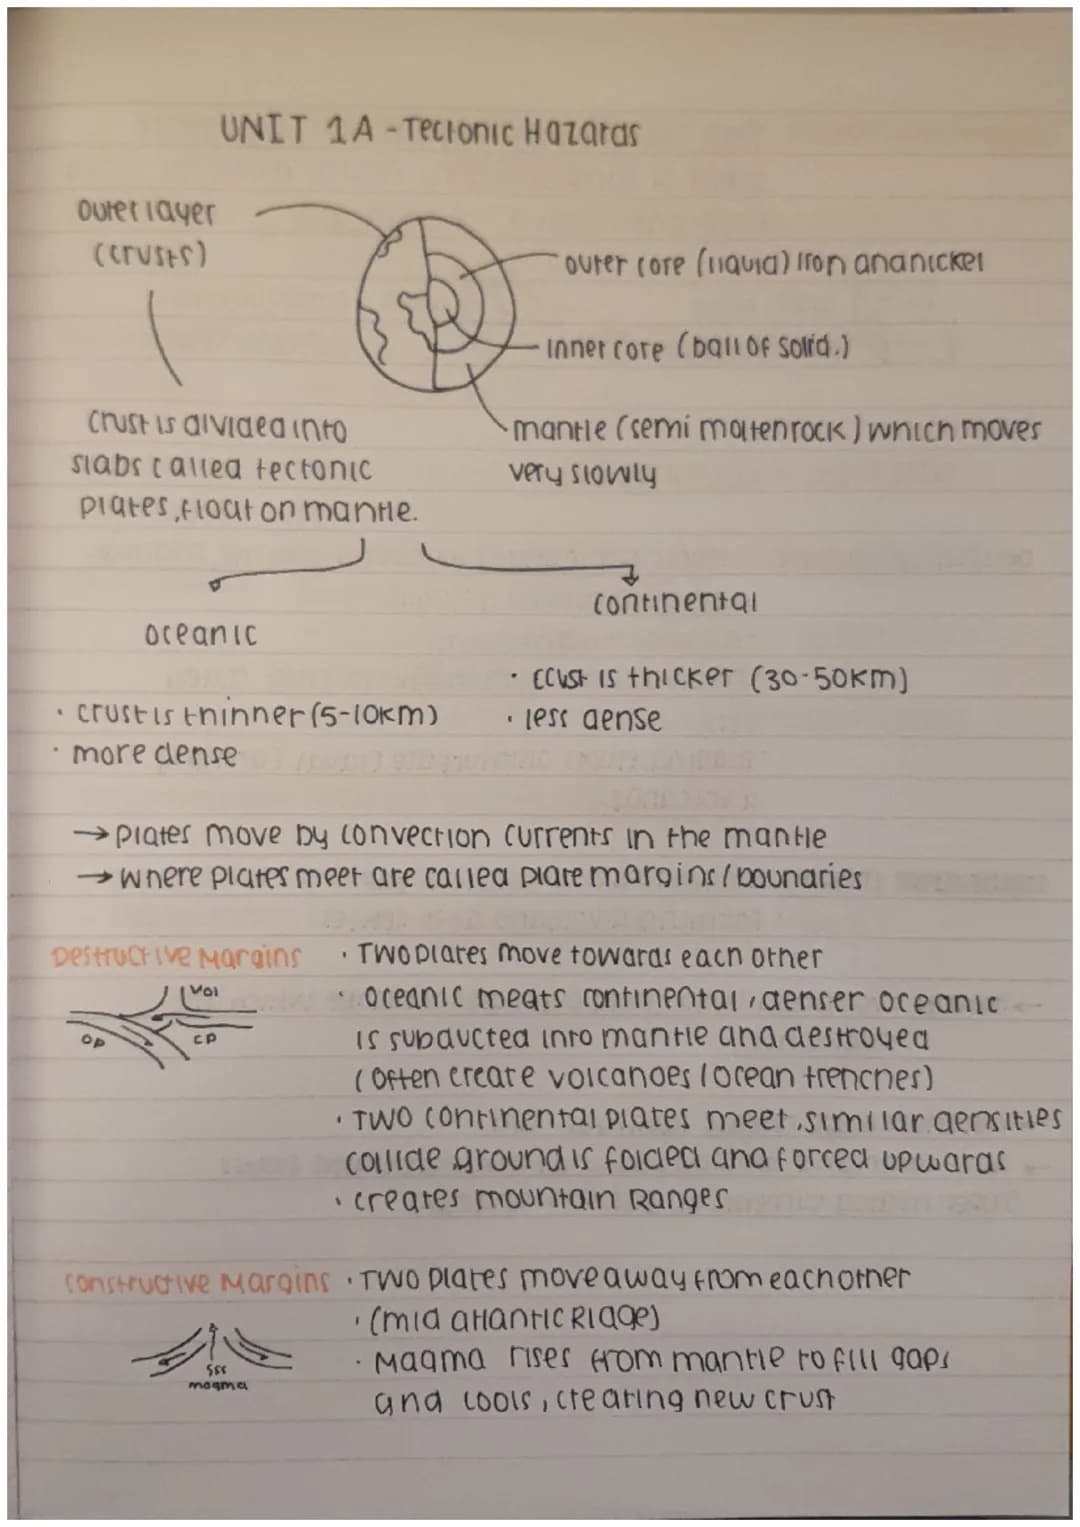 UNIT 1A - Tectonic Hazards
outer layer
(crusts)
outer core (liquid) iron and nickel
inner core (ball of solid.)
crust is divided into
slabs called tectonic
plates, float on mantle.
mantle (semi molten rock) which moves
very slowly
oceanic
continental
· crust is thinner (5-10km)
· more dense
· crust is thicker (30-50km)
· less dense
→ plates move by convection currents in the mantle
→ where plates meet are called plate margins / bounaries
Destructive Margins
VOl
OP
CP
· Two plates move towards each other
· oceanic meats continental, denser oceanic
is subducted into mantle and destroyed
(often create volcanoes / ocean trenches)
· Two continental plates meet, similar densities
collide ground is folded and forced upwards
· creates mountain Ranges
Constructive Margins
magma
· Two plates move away from each other
· (mid atlantic Ridge)
· Magma rises from mantle to fill gaps
and cools, creating new crust